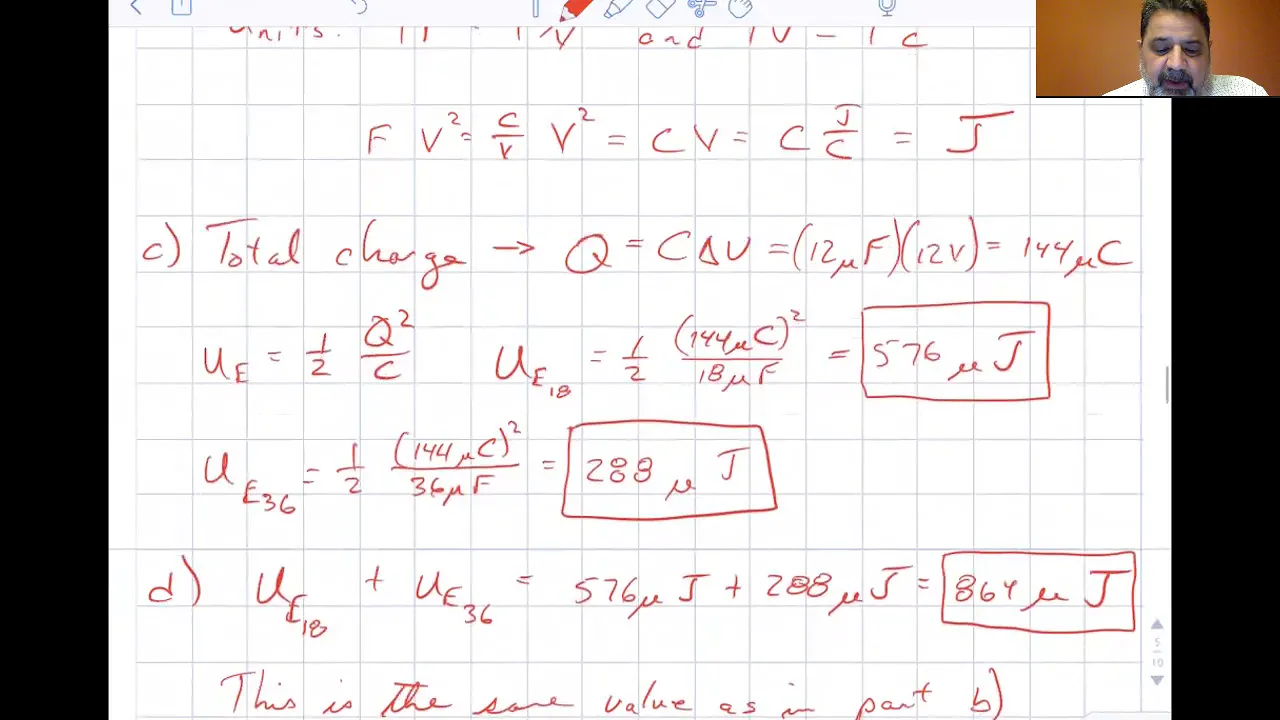 and
F V² = C/V V² = C V = C J/C = J
c) Total charge → Q = C Δ V = (12 μF)(12V) = 144 μC
U_E = 1/2 Q²/C U_E₁₈ = 1/2 (144 μC)²/18 μF = 576 μ J
U_E₃₆ = 1/2 (144 μC)²/36 μF = 288 μ J
d) U_E₁₈ + U_E₃₆ = 576 μ J + 288 μ J = 864 μ J
This is the same value as in part b)
5
10